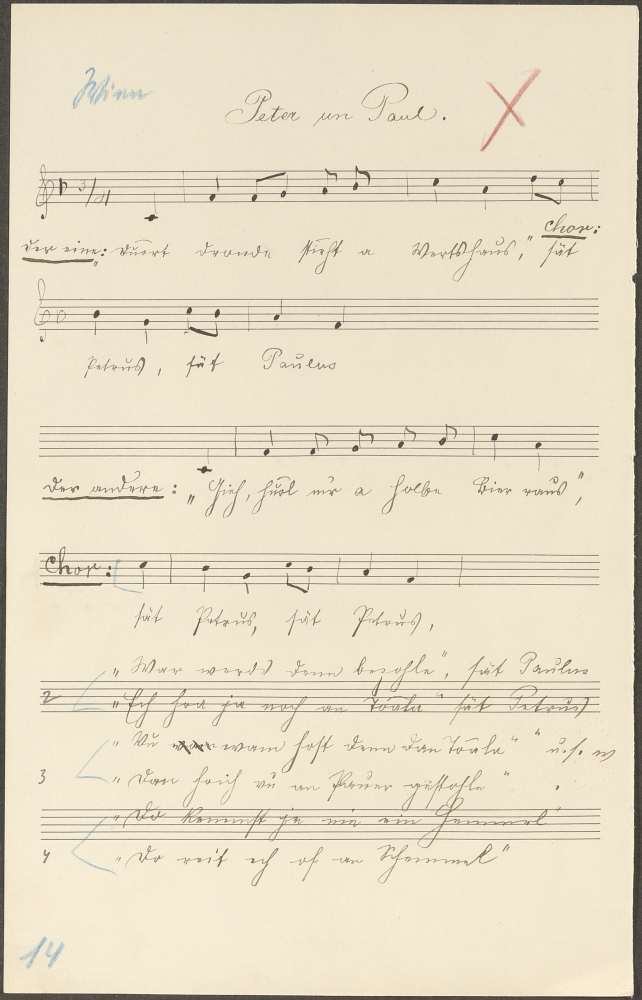 Peter un Paul.
3/4
Chor:
der eine: "Duort dronde stieht a Wertshaus," sät
Petrus, sät Paulus
Der andere: "Gieh, huol mir a holbe Bier raus",
Chor:
sät Petrus, sät Petrus,
"War werds denn bezohle", sät Paulus
2 "Ech hoa ja noch an Toala" sät Petrus
"Vu wam host denn dan Toala" " u.s.w
3 "Dan hoich vu an Pauer gestohle"
"Do kemmst je nie ein Hemmel"
4 "Do reit ech of an Schemmel"
14